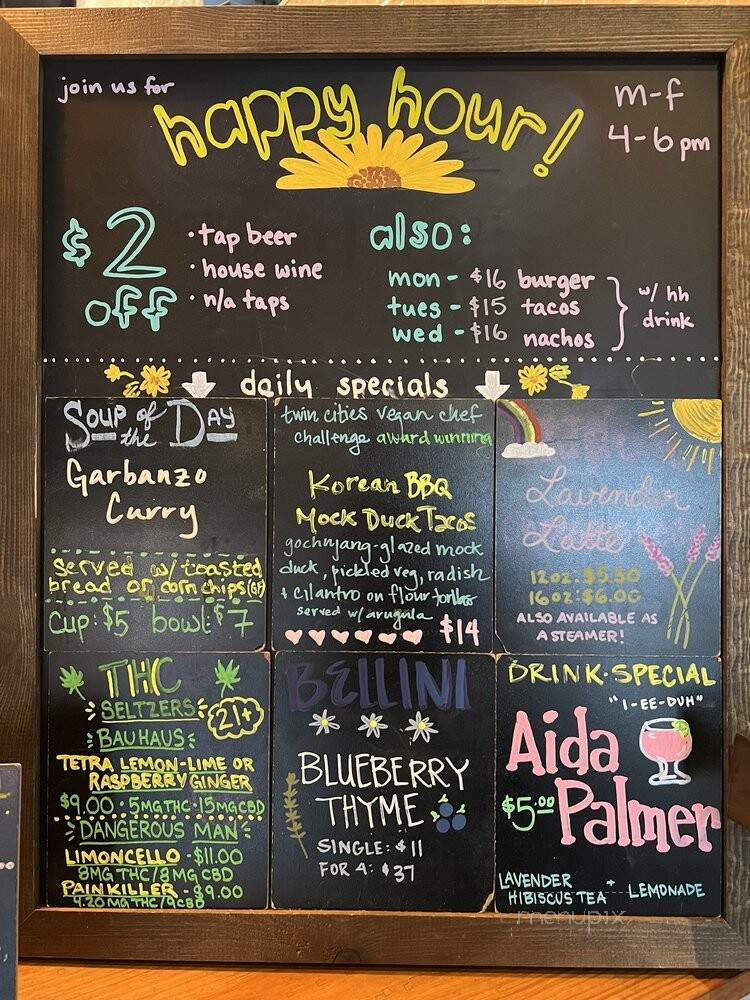 join us for
happy hour!
m-f
4-6 pm
$2
off
• tap beer
• house wine
• n/a taps
also:
mon - $16 burger
tues - $15 tacos
wed - $16 nachos
w/ hh
drink
daily specials
Soup of
the Day
Garbanzo
Curry
served w/ toasted
bread or corn chips (GF)
cup: $5 bowl: $7
twin cities vegan chef
challenge award winning
Korean BBQ
Mock Duck Tacos
gochujang-glazed mock
duck, pickled veg, radish
+ cilantro on flour tortillas
served w/ arugula
$14
Lavender
Latte
12oz: $5.50
16oz: $6.00
ALSO AVAILABLE AS
A STEAMER!
THC
SELTZERS
21+
BAUHAUS
TETRA LEMON-LIME OR
RASPBERRY GINGER
$9.00 • 5MG THC • 15MG CBD
DANGEROUS MAN
LIMONCELLO - $11.00
8MG THC/8MG CBD
PAINKILLER - $9.00
4.20 MG THC/9CBD
BELLINI
BLUEBERRY
THYME
SINGLE: $11
FOR 4: $37
DRINK • SPECIAL
"I-EE-DUH"
Aida
$5.00 Palmer
LAVENDER
HIBISCUS TEA + LEMONADE
menupix